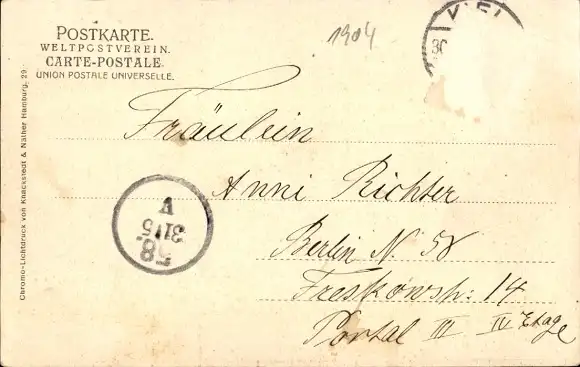 1904
KIEL
30
POSTKARTE.
WELTPOSTVEREIN.
CARTE-POSTALE.
UNION POSTALE UNIVERSELLE.
Chromo-Lichtdruck von Knackstedt & Näther Hamburg. 29
Fräulein
Anni Richter
Berlin N. 58
Treskowstr: 14
Portal III IV Etage
58.
31/5
V